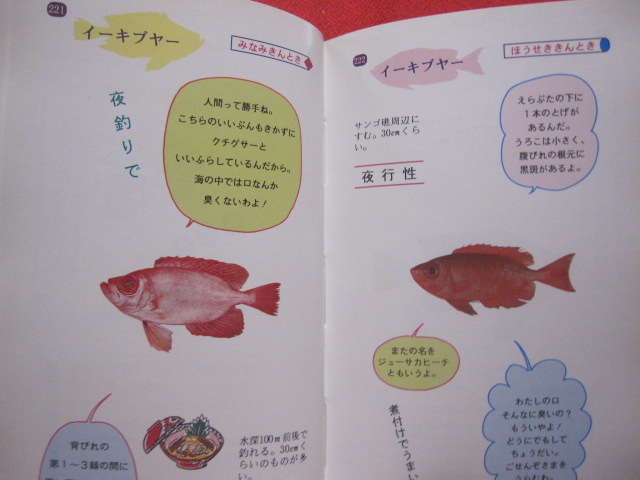 221
イーキブヤー
みなみきんとき
夜釣りで
人間って勝手ね。
こちらのいいぶんもきかずに
クチグサーと
いいふらしているんだから。
海の中では口なんか
臭くないわよ!
背びれの
第1〜3棘の間に
水深100m前後で
釣れる。30cmく
らいのものが多
い。
222
イーキブヤー
ほうせききんとき
サンゴ礁周辺に
すむ。30cmくら
い。
夜行性
えらぶたの下に
1本のとげが
あるんだ。
うろこは小さく、
腹びれの根元に
黒斑があるよ。
またの名を
ジューサカヒーチ
ともいうよ。
煮付けでうまい
わたしの口
そんなに臭いの?
もういやよ!
どうにでもして
ちょうだい。
ごせんぞさまを
うらむわ。